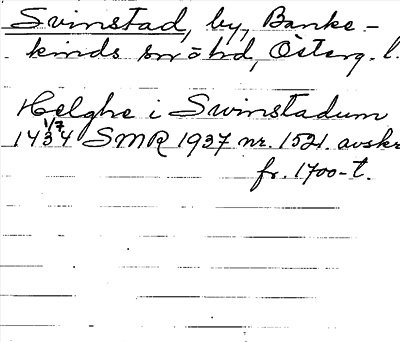 Svinstad, by, Banke-
kinds sn o hd, Österg. l.
Helghe i Swinstadum
1/7
1434 SMR 1937 nr. 1521. avskr
fr. 1700-t.